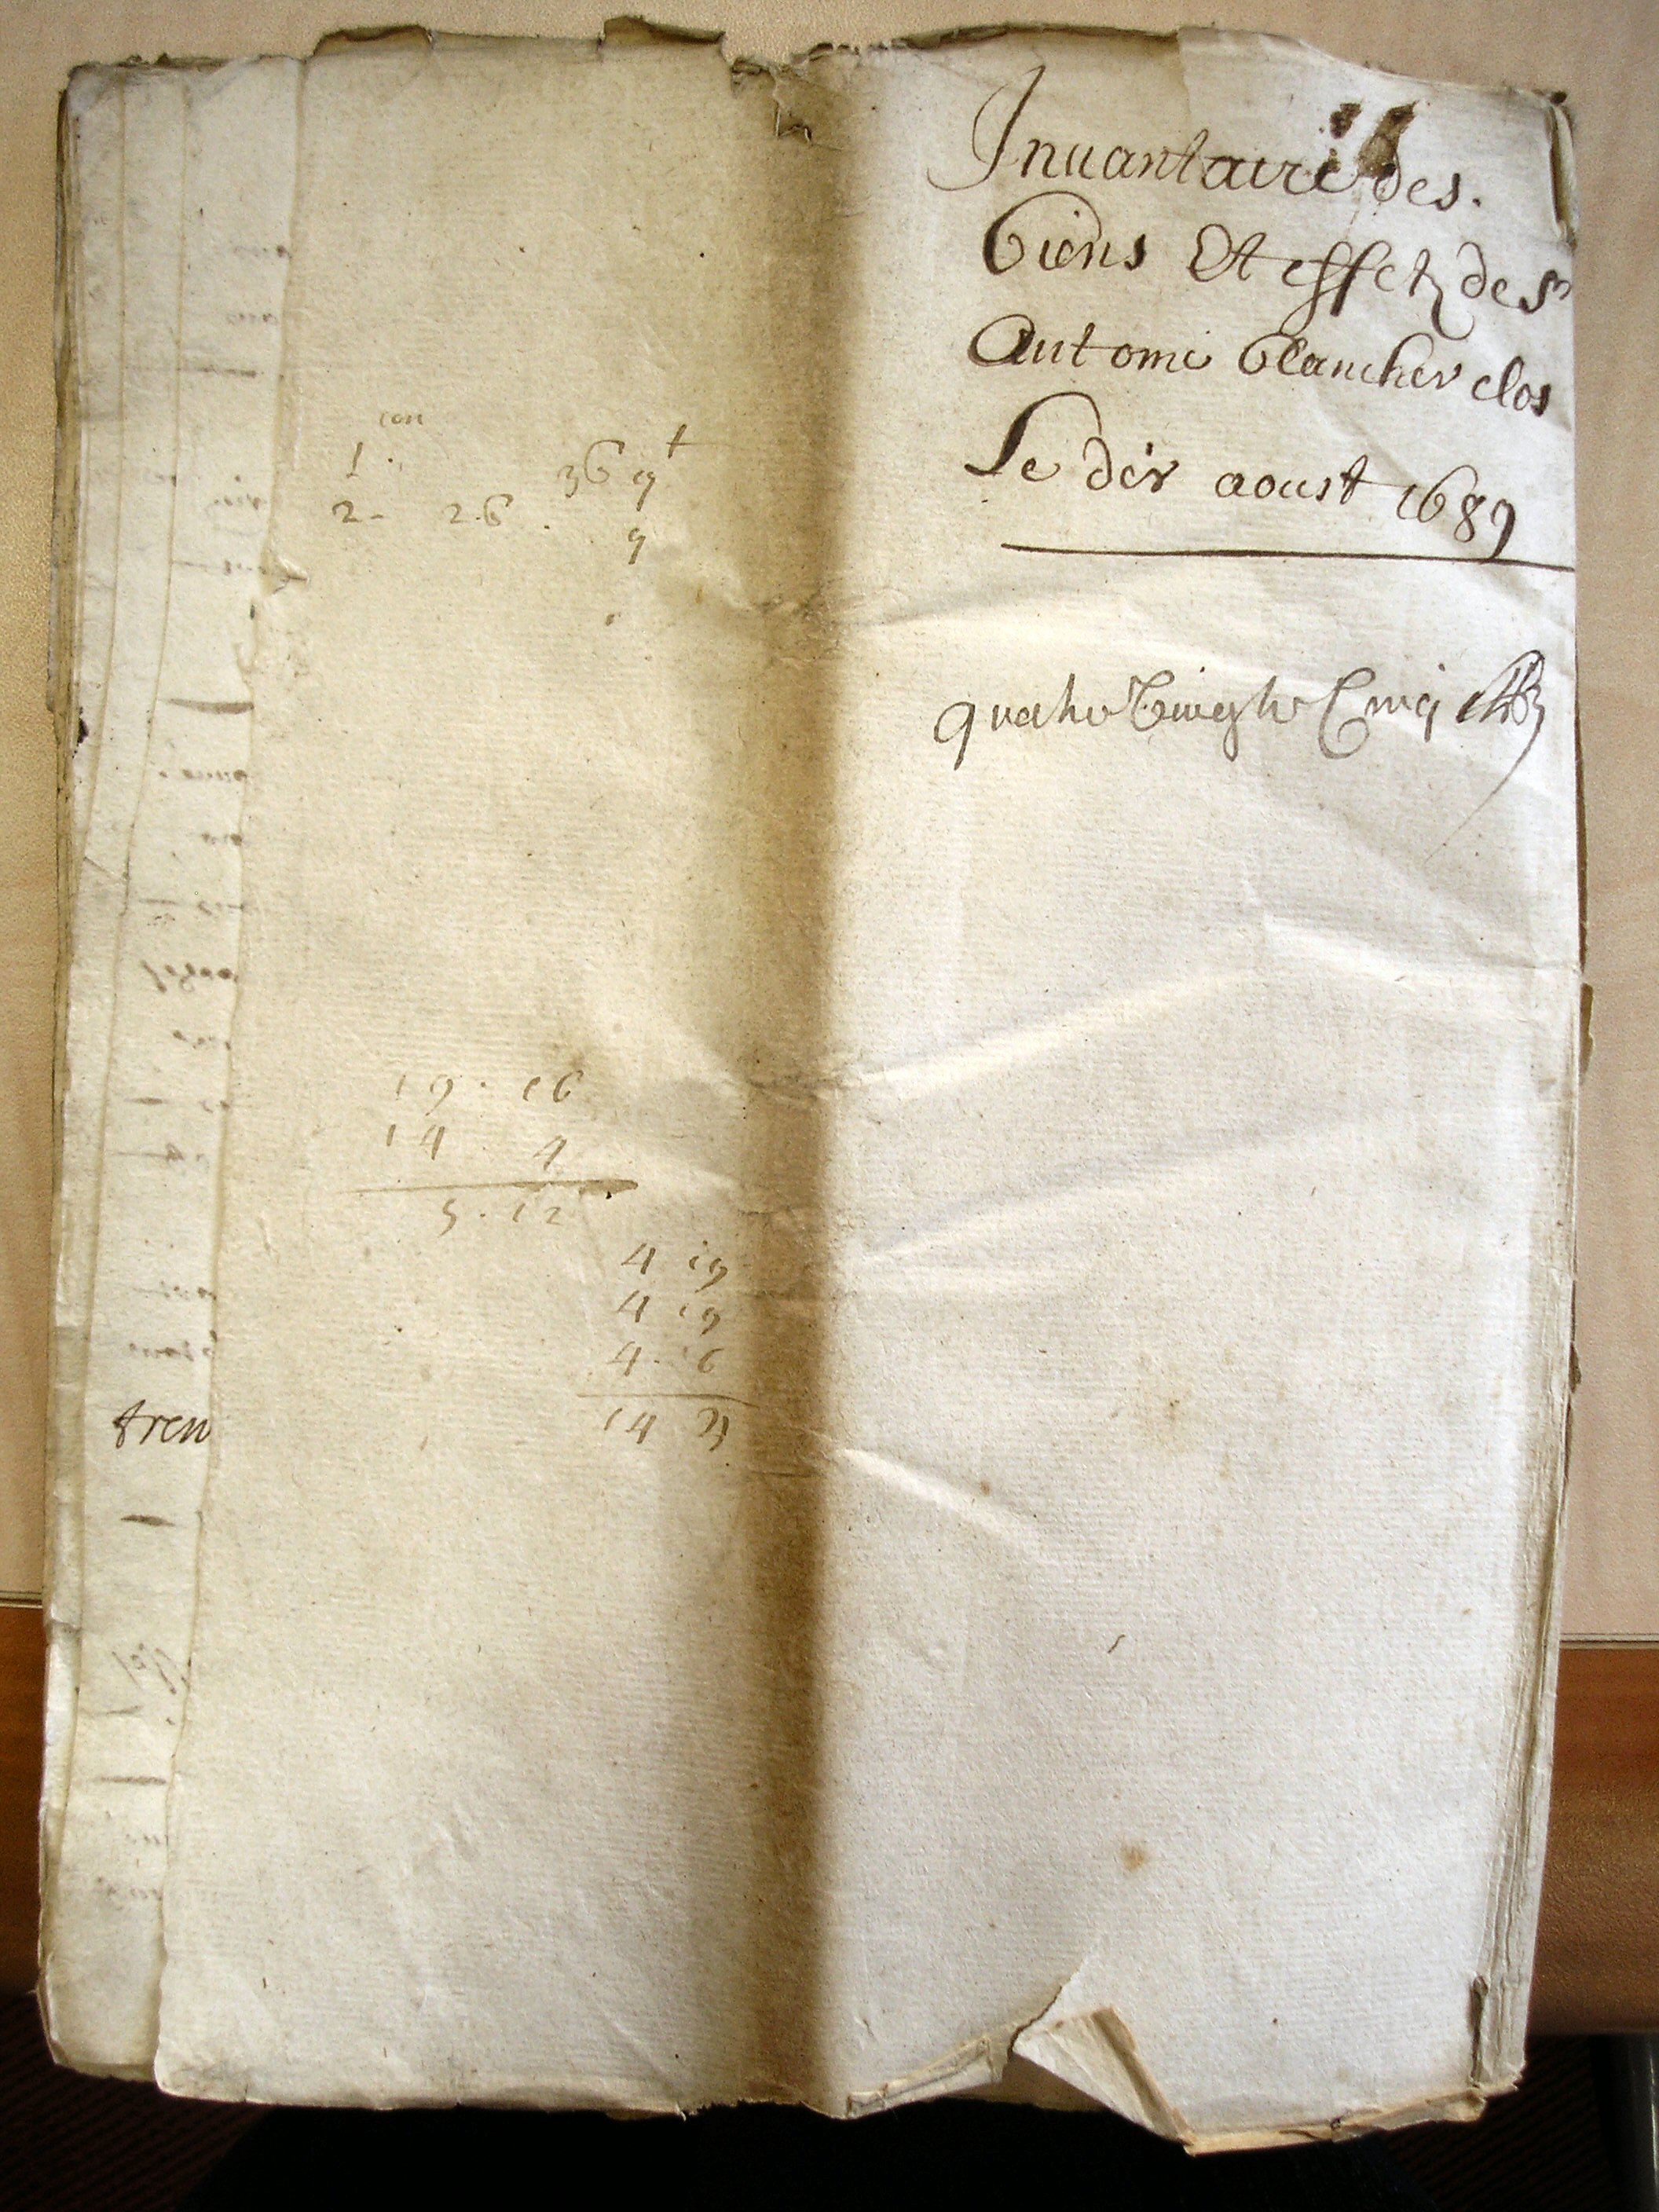 Inuantaire des.
biens Et effetz de Sr
Antoine blancher clos
Le dix aoust 1689
quatre Vingts Cinq
con
1.
36 9 t
2 - 26.
9
19 . 16
14 4
5 . 12
4 19
4 19
4 - 6
14
tren